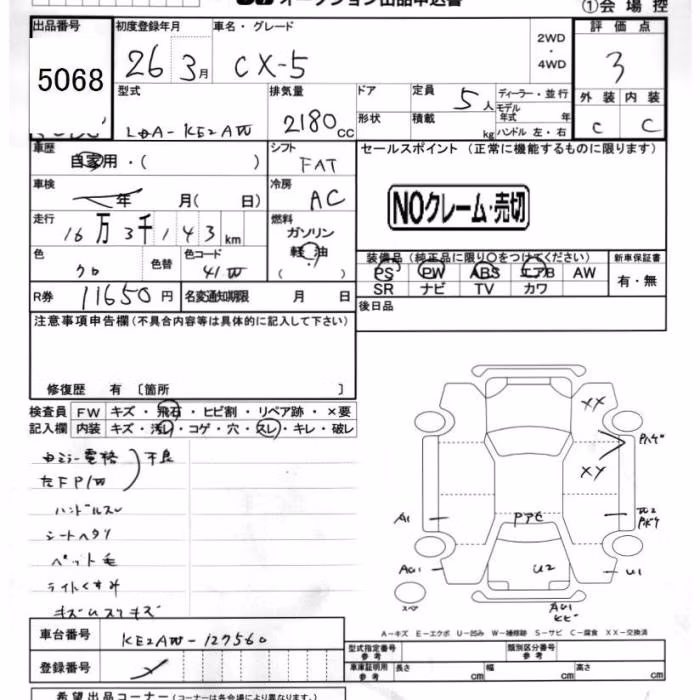 オークション出品申込書
①会場控
出品番号 初度登録年月 車名・グレード 2WD・4WD 評価点
5068 26年3月 CX-5 3
型式 排気量 ドア 定員 ディーラー・並行 外装 内装
LDA-KE2AW 2180cc 5人 モデル年式 年 C C
形状 積載 kg ハンドル 左・右
車歴 シフト セールスポイント(正常に機能するものに限ります)
自家用・( ) FAT
車検 冷房
年 月( 日) AC NOクレーム・売切
走行 燃料
16万3千143km ガソリン
軽油
( )
色 色替 色コード 装備品(純正品に限り○をつけてください) 新車保証書
クロ 41W PS PW ABS エアB AW 有・無
SR ナビ TV カワ
R券 11650円 名変通知期限 月 日 後日品
注意事項申告欄(不具合内容等は具体的に記入して下さい)
修復歴 有 〔箇所 〕
検査員 FW キズ・飛石・ヒビ割・リペア跡・×要
記入欄 内装 キズ・汚レ・コゲ・穴・スレ・キレ・破レ
不良
ハンドルスレ
シートヘタリ
ペット毛
ライトくすみ
XX
Pハゲ
XY
A1 Pアセ
AU1 U2 U1
スペア AU1
ヒビ
A-キズ E-エクボ U-凹み W-補修跡 S-サビ C-腐食 XX-交換済
車台番号 KE2AW-127560 型式指定番号 参考 類別区分番号 参考
登録番号 車庫証明用 参考 長さ cm 幅 cm 高さ cm
希望出品コーナー(コーナーは各会場により異なります。)